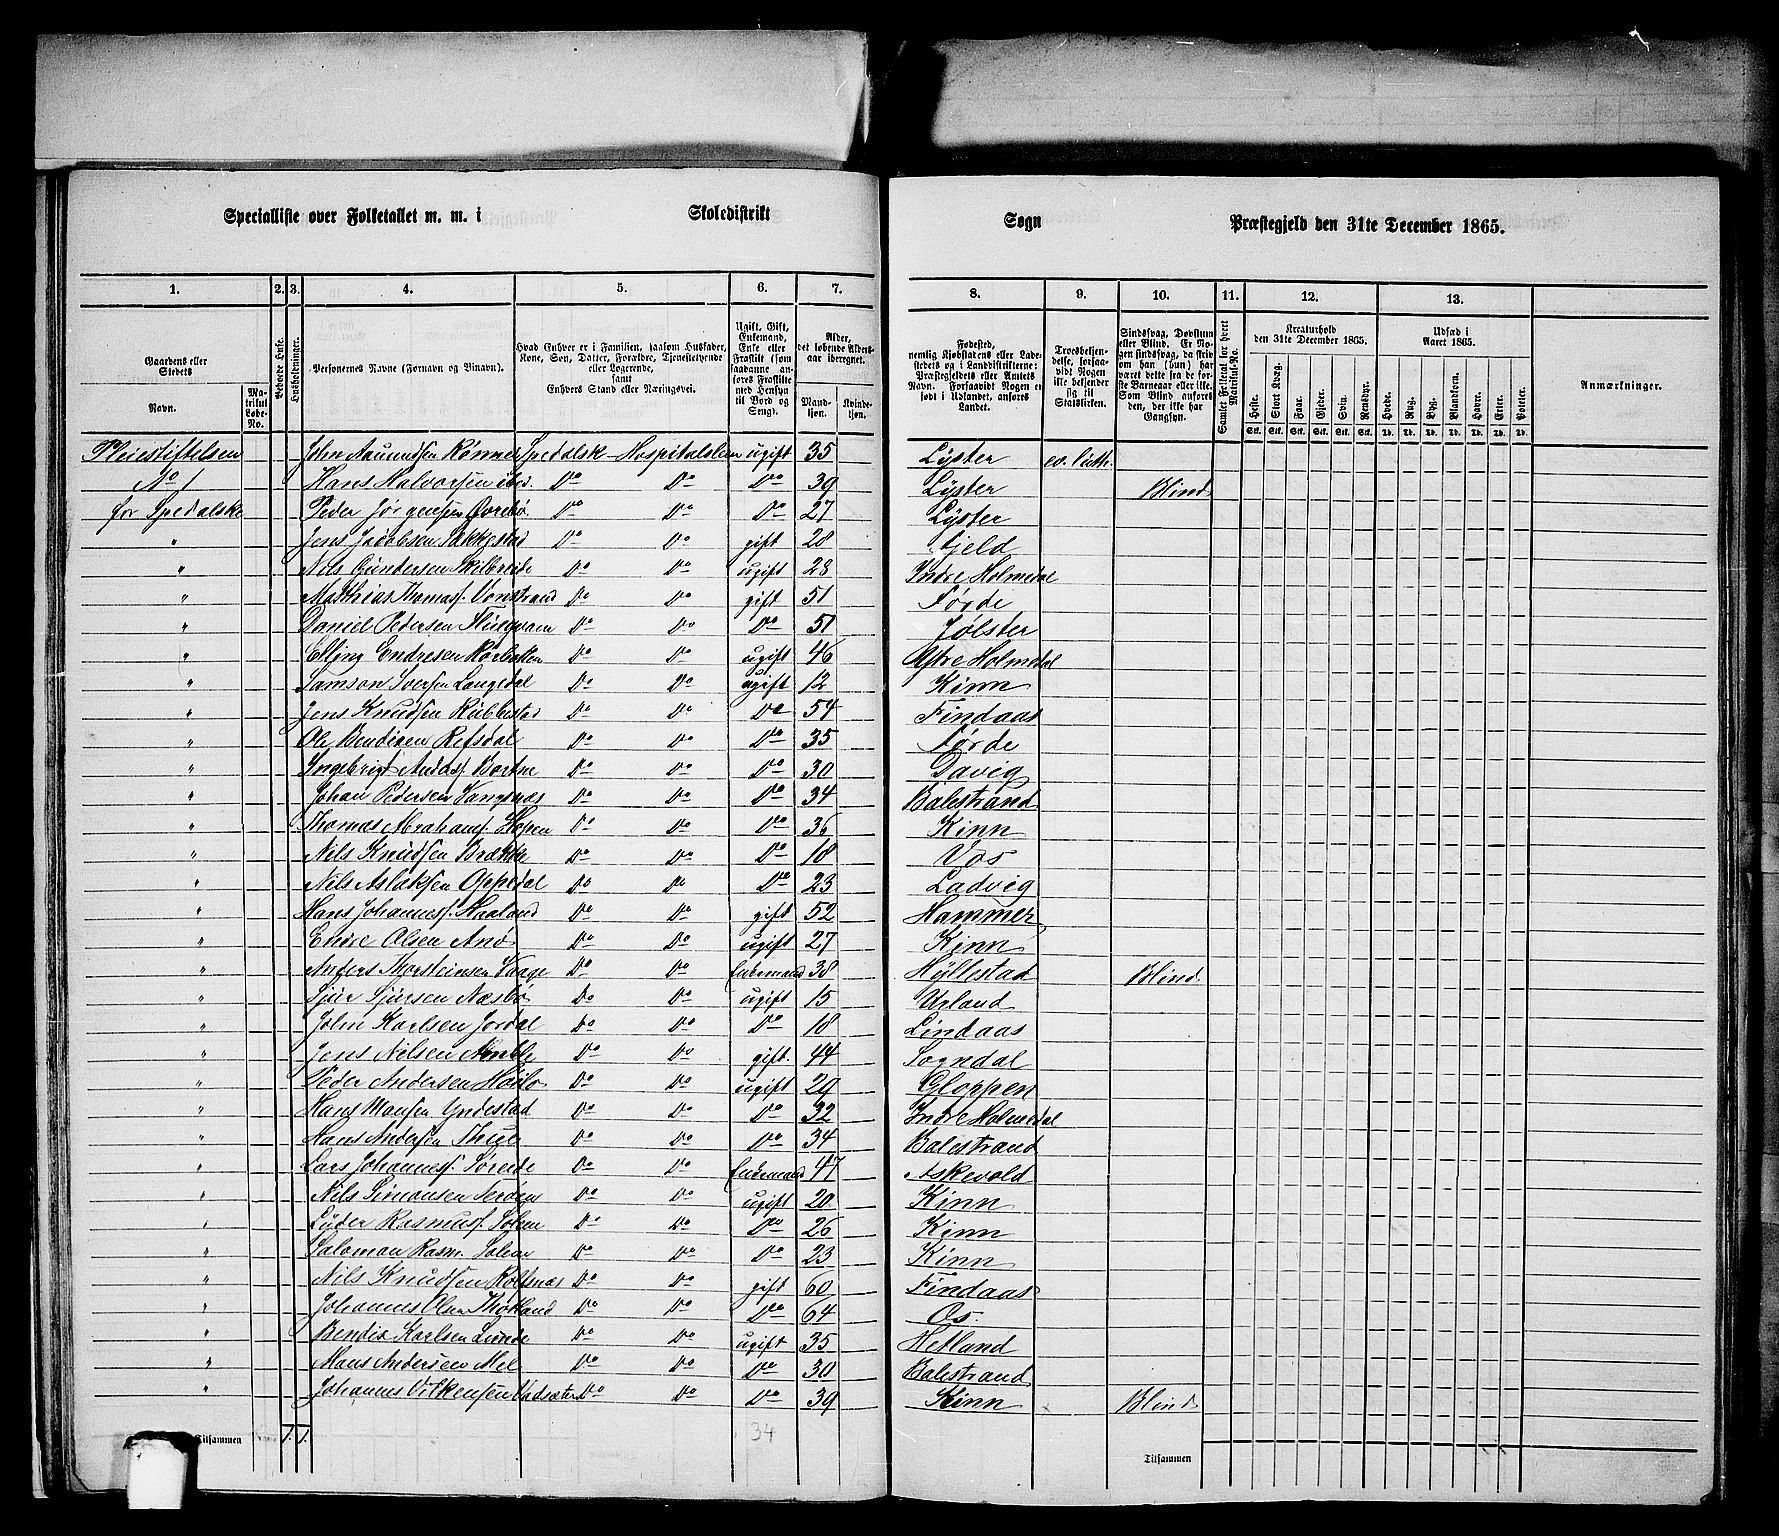 Specialliste over Folketallet m. m. i Skoledistrikt Sogn Præstegjeld den 31te December 1865.
1. 2. 3. 4. 5. 6. 7. 8. 9. 10. 11. 12. 13.
Gaardens eller Stedets
Navn.
Matrikul Løbe-No.
Beboede Huse.
Husholdninger.
Personernes Navne (Fornavn og Binavn).
Hvad Enhver er i Familien, saasom Husfader, Kone, Søn, Datter, Forældre, Tjenestetyende eller Logerende, samt Enhvers Stand eller Næringsvei.
Ugift, Gift, Enkemand, Enke eller Fraskilt (som saadanne anføres Fraskilte med Hensyn til Bord og Seng).
Alder, det løbende Aldersaar iberegnet.
Mandkjøn. Kvindekjøn.
Fødested, nemlig Kjøbstadens eller Ladestedets og i Landdistrikterne: Præstegjeldets eller Amtets Navn. Forsaavidt Nogen er født i Udlandet, anføres Landet.
Troesbekjendelse, forsaavidt Nogen ikke bekjender sig til Statskirken.
Sindssvag, Døvstum eller Blind. Er Nogen sindssvag, da skriv om han (hun) har været det før Barneaar eller ikke. Som Blind anføres den, der ikke har Gangsyn.
Samlet Folketal for hvert Matrikul-No.
Kreaturhold den 31te December 1865.
Heste. Stort Kvæg. Faar. Gjeder. Svin. Rensdyr.
Stk. Stk. Stk. Stk. Stk. Stk.
Udsæd i Aaret 1865.
Hvede. Rug. Byg. Blandkorn. Havre. Erter. Poteter.
Td. Td. Td. Td. Td. Td. Td.
Anmærkninger.
Pleiestiftelsen John Aamundsen Rønnei Spedalsk Hospitalslem ugift 35 Lyster ev. luth.
No 1 Hans Halvorsen ibd. Do Do Do 39 Lyster Blind
for Spedalske Peder Jørgensen Do Do Do 27 Lyster
" Jens Jacobsen Do Do gift 28 Fjeld
" Nils Gundersen Skilbreide Do Do ugift 28 Indre Holmedal
" Matthias Thomasf. Do Do gift 51 Førde
" Daniel Pedersen Do Do Do 51 Jølster
" Elling Endresen Do Do ugift 46 Ytre Holmedal
" Samson Iversen Langedal Do Do ugift 12 Kinn
" Jens Knudsen Rubbestad Do Do Do 54 Findaas
" Ole Bendixen Refsdal Do Do Do 35 Førde
" Ingebrigt Andersf. Bortne Do Do Do 30 Davig
" Johan Pedersen Vangsnæs Do Do Do 34 Balestrand
" Thomas Abrahamsf. Hopen Do Do Do 36 Kinn
" Nils Knudsen Brække Do Do Do 18 Vos
" Nils Aslaksen Oppedal Do Do Do 23 Ladvig
" Hans Johannesf. Haaland Do Do gift 52 Hammer
" Endre Olsen Anø Do Do ugift 27 Kinn
" Anders Thorsteinsen Vaage Do Do Enkemand 38 Hyllestad Blind
" Sjur Sjursen Næsbø Do Do ugift 15 Urland
" John Karlsen Jordal Do Do Do 18 Lindaas
" Jens Nilsen Do Do gift 44 Sogndal
" Peder Andersen Do Do ugift 29 Gloppen
" Hans Monsen Yndestad Do Do Do 32 Indre Holmedal
" Hans Andersen Thue Do Do Do 34 Balestrand
" Lars Johannesf. Søreide Do Do Enkemand 47 Askevold
" Nils Simonsen Do Do ugift 20 Kinn
" Lyder Rasmusf. Solem Do Do Do 26 Kinn
" Salomon Rasm. Solem Do Do Do 23 Kinn
" Nils Knudsen Do Do gift 60 Findaas
" Johannes Olsen Do Do Do 64 Os
" Bendix Karlsen Lunde Do Do ugift 35 Hetland
" Hans Andersen Mel Do Do Do 30 Balestrand
" Johannes Do Do Do 39 Kinn Blind
Tilsammen 1. 1. 34 Tilsammen